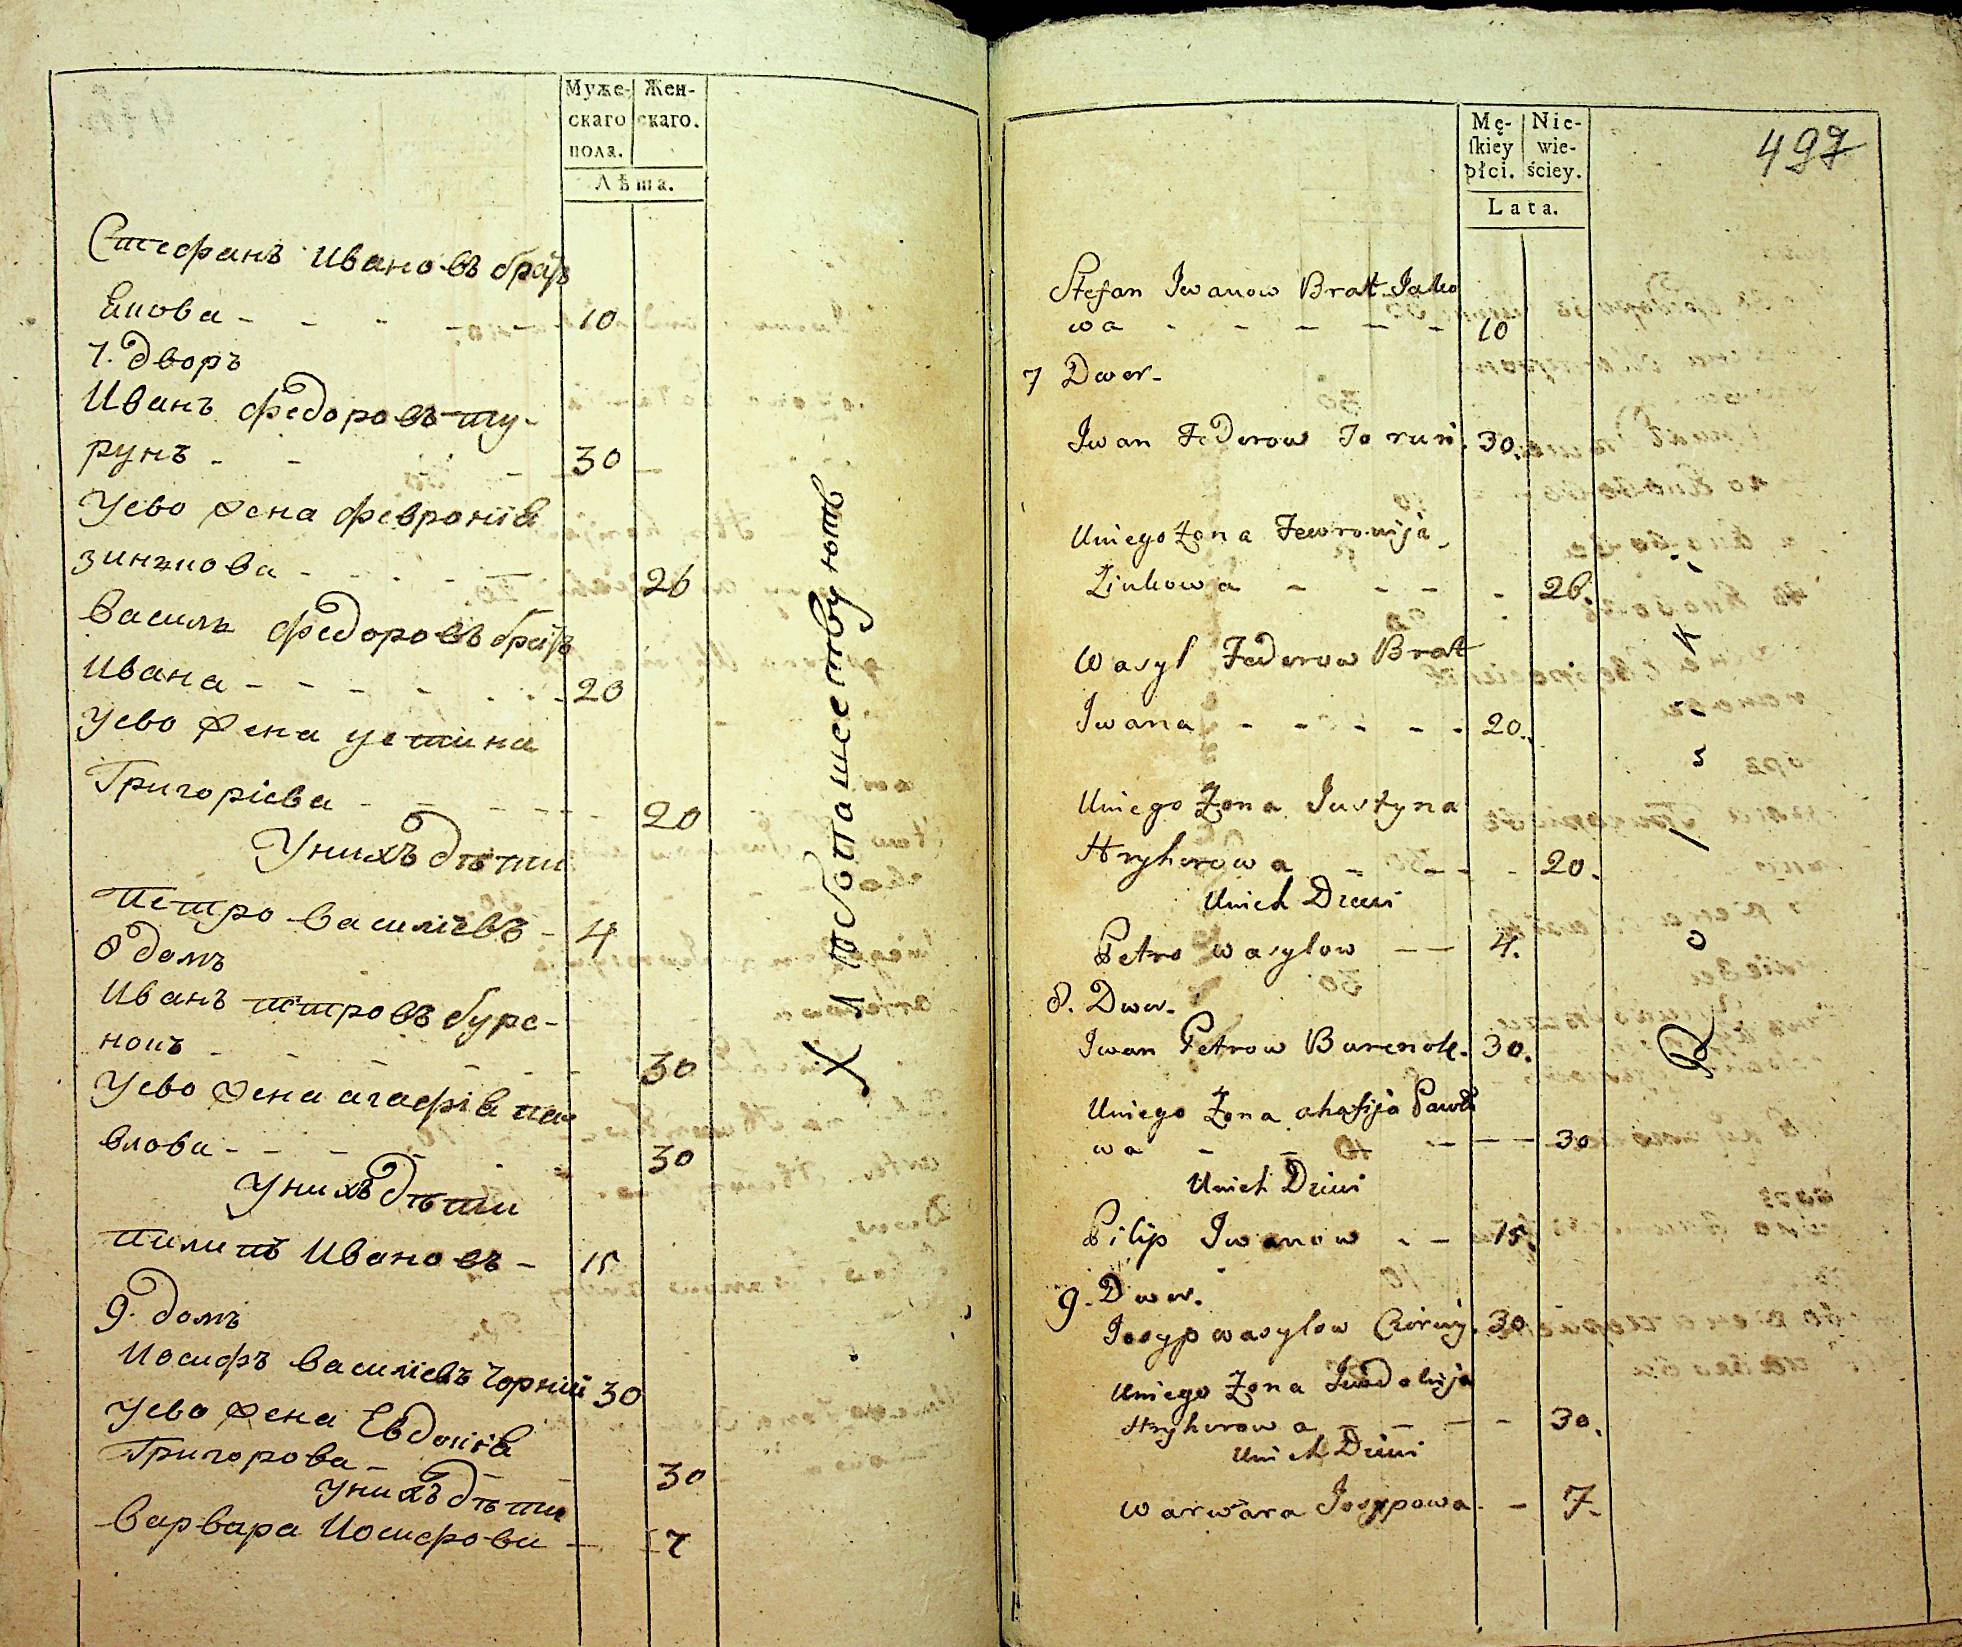 Муже- Жен-
скаго скаго.
пола.
Лѣта.
Стефанъ Ивановъ братъ
Якова - - - - - 10
7. дворъ
Иванъ федоровъ ту-
рунъ - - - - 30
Уево жена февронія
зинкова - - - - - 26
Василь федоровъ братъ
Ивана - - - - - 20
Уево жена устина
Григоріева - - - - 20
Унихъ дѣти
Петро Василіевъ - 4
8 домъ
Иванъ петровъ буре-
нокъ - - - - - 30
Уево жена агафія па
влова - - - - 30
Унихъ дѣти
пилипъ Ивановъ - 15
9. домъ
Иосифъ Василіевъ Чорній 30
Уево жена Евдокія
Григорова - - - 30
Унихъ дѣти
Варвара Иосифова - - 7
Mę- Nie-
ſkiey wie-
płci. ściey.
Lata.
497
Stefan Iwanow Brat Jako
wa - - - - - 10
7 Dwor.
Iwan Fedorow To run. 30.
Uniego Żona Fewronija
Zinkowa - - - - 26.
Wasyl Fedorow Brat
Iwana - - - - - 20.
Uniego Żona Justyna
Hryhorowa - - - - 20.
Unich Dzieci
Petro Wasylow - - 4.
8. Dwor.
Iwan Petrow Burenok. 30.
Uniego Żona ahafija Pawło
wa - - - - - 30
Unich Dzieci
Pilip Iwanow - - 15.
9. Dwor.
Josyp wasylow Czorny. 30.
Uniego Żona Jewdokija
Hryhorowa - - - - 30.
Unich Dzieci
Warwara Josypowa - - 7.